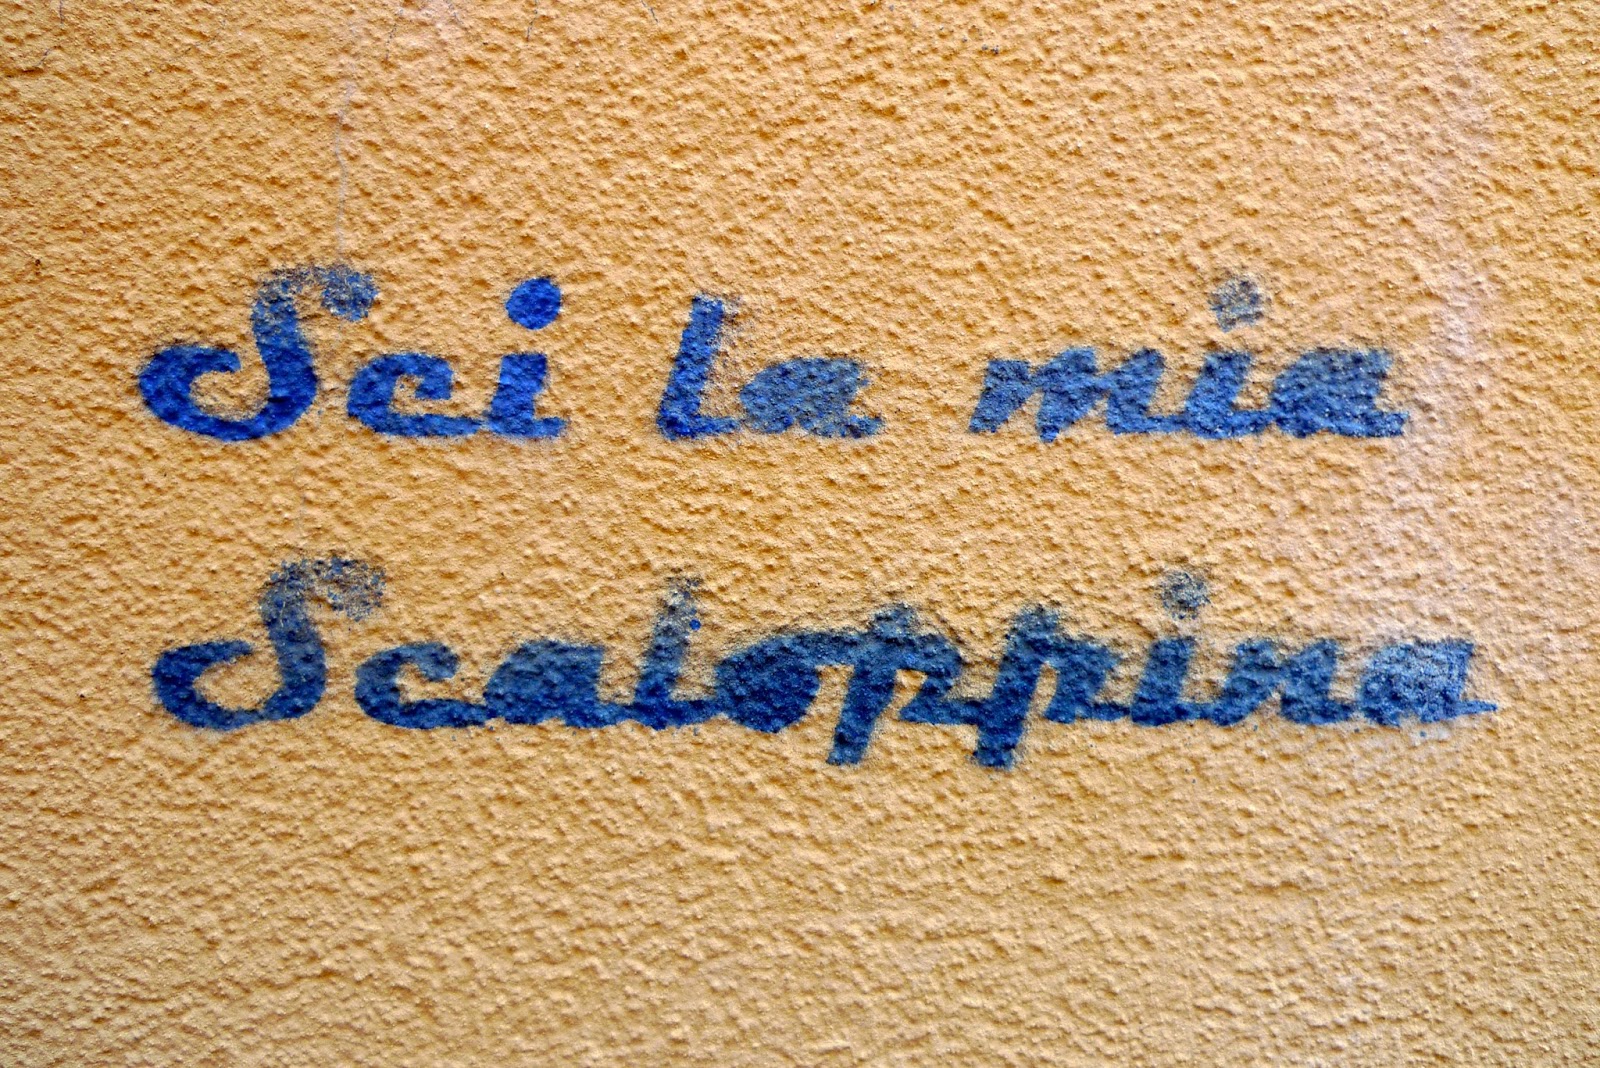 Sei la mia
Scaloppina